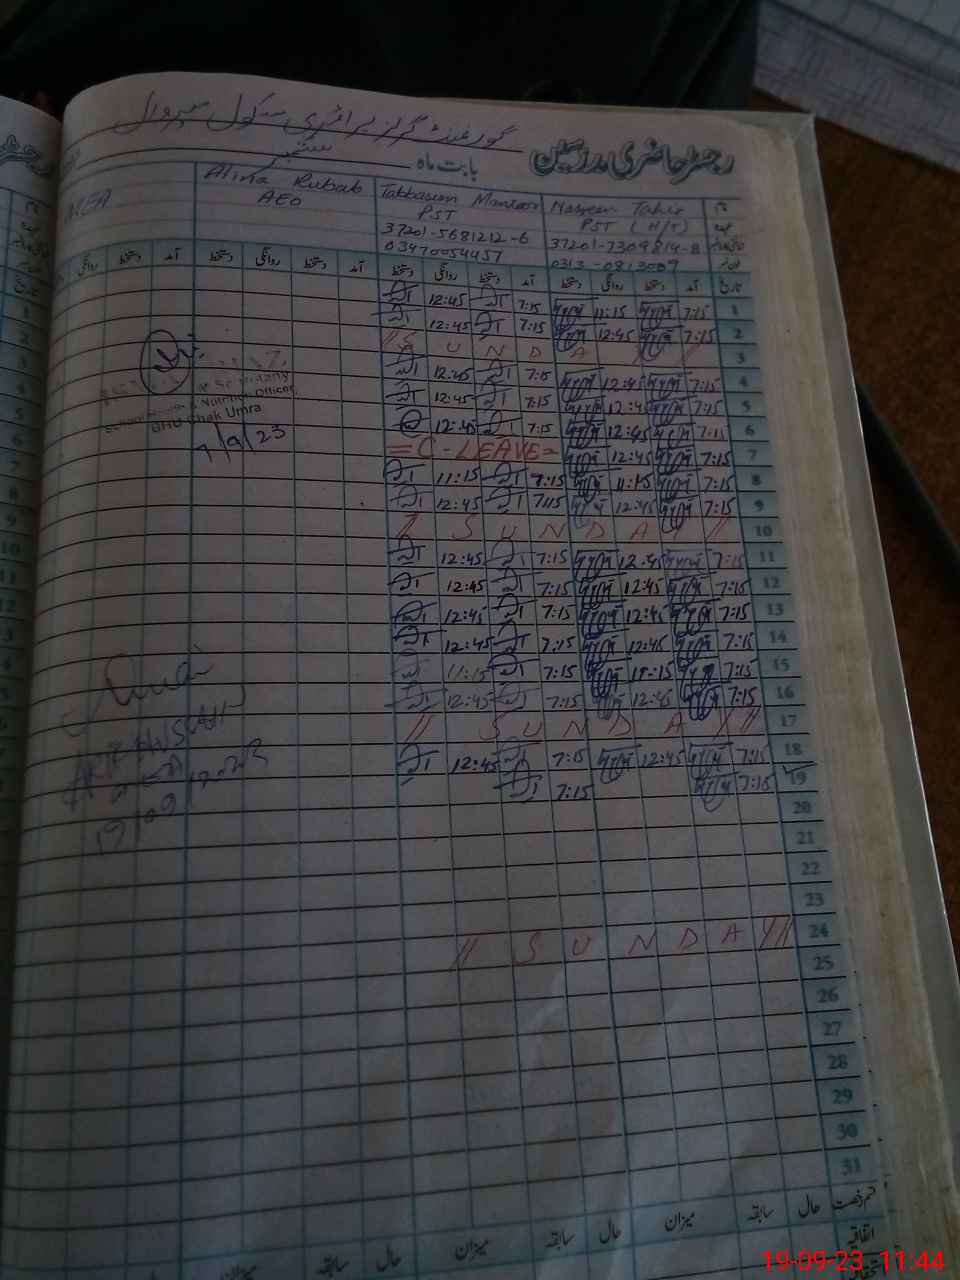 گورنمنٹ گرلز پرائمری سکول سہروال
رجسٹر حاضری مدرسین بابت ماہ ستمبر
MEA
Alina Rubab
AEO
Tabbasum Manzoor
PST
37201-5681212-6
03470054457
Naseem Tahir
PST (H/T)
37201-7309814-8
0313-0813009
روانگی دستخط آمد دستخط روانگی دستخط آمد دستخط روانگی دستخط آمد دستخط روانگی دستخط آمد تاریخ
12:45 7:15 11:15 7:15 1
12:45 7:15 12:45 7:15 2
// S U N D A Y // 3
12:45 7:15 12:45 7:15 4
12:45 7:15 12:45 7:15 5
12:45 7:15 12:45 7:15 6
= C-LEAVE = 12:45 7:15 7
11:15 7:15 11:15 7:15 8
12:45 7:15 12:45 7:15 9
// S U N D A Y // 10
12:45 7:15 12:45 7:15 11
12:45 7:15 12:45 7:15 12
12:45 7:15 12:45 7:15 13
12:45 7:15 12:45 7:15 14
11:15 7:15 11:15 7:15 15
12:45 7:15 12:45 7:15 16
// S U N D A Y // 17
12:45 7:15 12:45 7:15 18
7:15 7:15 19
20
21
22
23
// S U N D A Y // 24
25
26
27
28
29
30
31
School Health & Nutrition Officer
BHU Chak Umra
7/9/23
19/09/2023
میزان سابقہ حال میزان سابقہ حال میزان سابقہ حال قسم رخصت
اتفاقیہ
19-09-23 11:44